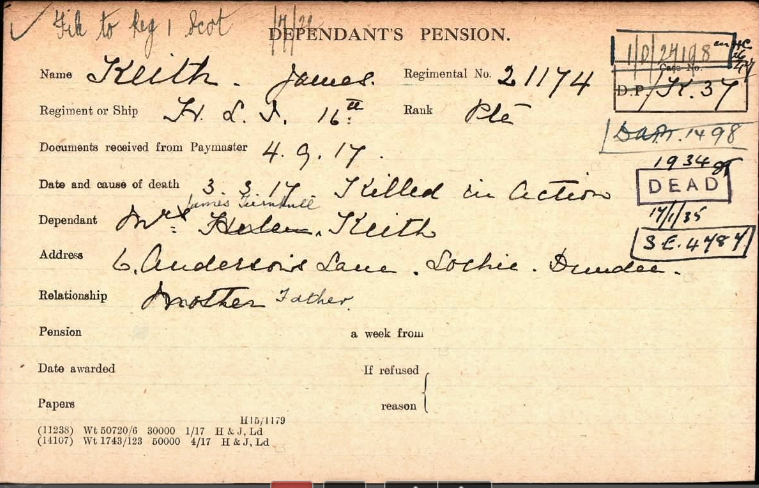 File to Reg 1 Scot
DEPENDANT'S PENSION.
1/D/24198
Case No.
D.P./K. 37
Name Keith. James. Regimental No. 21174
Regiment or Ship H. L. I. 16th Rank Pte
1498
Documents received from Paymaster 4.9.17.
1934
Date and cause of death 3.3.17. Killed in Action
DEAD
James Turnbull
17/1/35
Dependant Mrs Helen. Keith
S.E. 4787
Address 6. Anderson's Lane. Lochie. Dundee.
Relationship Mother Father.
Pension a week from
Date awarded If refused
Papers reason
H15/1179
(11238) Wt 50720/6 30000 1/17 H & J, Ld
(14107) Wt 1743/123 50000 4/17 H & J, Ld